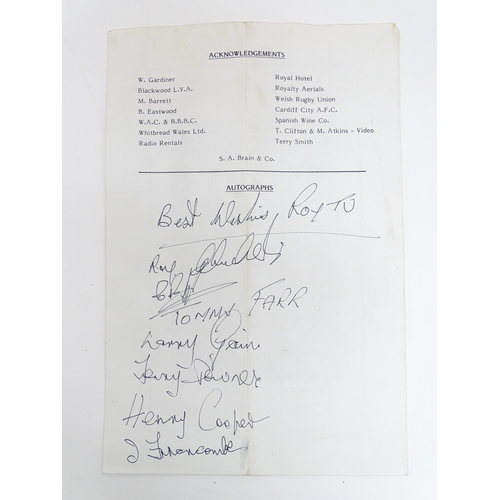 ACKNOWLEDGEMENTS
W. Gardiner
Blackwood L.V.A.
M. Barrett
B. Eastwood
W.A.C. & B.B.B.C.
Whitbread Wales Ltd.
Radio Rentals
Royal Hotel
Royalty Aerials
Welsh Rugby Union
Cardiff City A.F.C.
Spanish Wine Co.
T. Clifton & M. Atkins - Video
Terry Smith
S. A. Brain & Co.
AUTOGRAPHS
Best Wishes
TOMMY FARR
Larry
Terry Downes
Henry Cooper